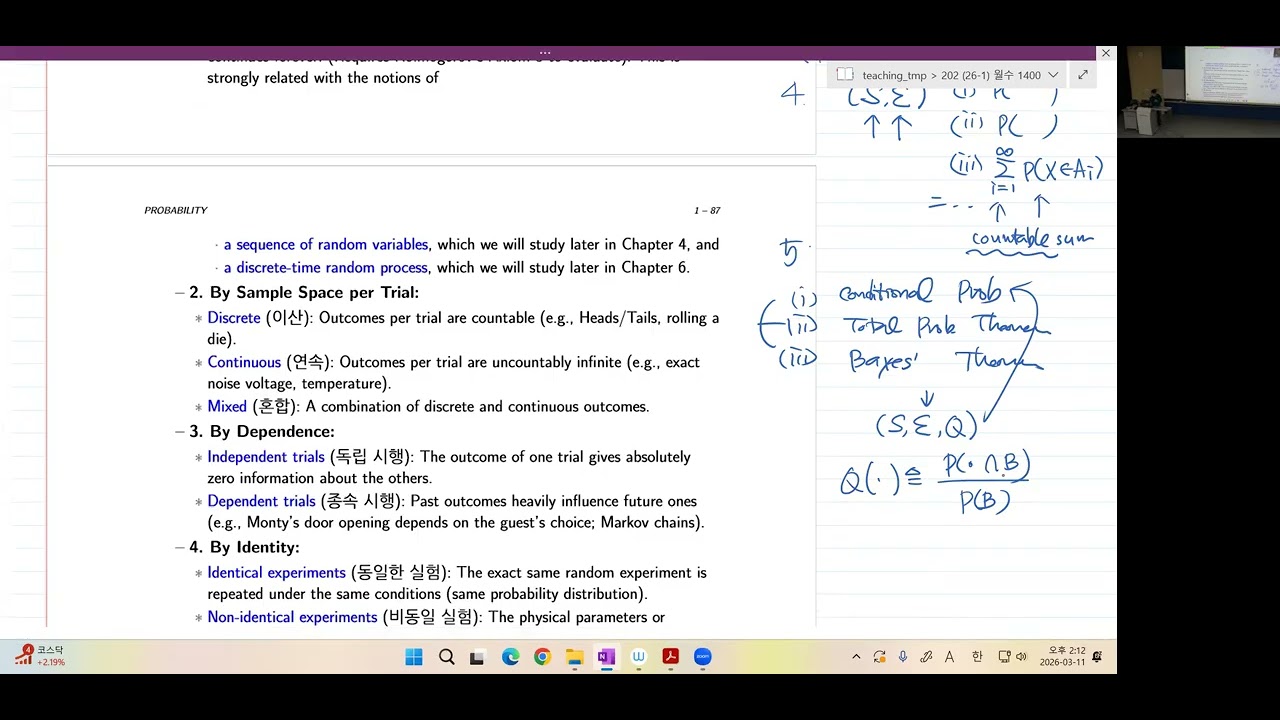 strongly related with the notions of
PROBABILITY
1 – 87
· a sequence of random variables, which we will study later in Chapter 4, and
· a discrete-time random process, which we will study later in Chapter 6.
– 2. By Sample Space per Trial:
∗ Discrete (이산): Outcomes per trial are countable (e.g., Heads/Tails, rolling a
die).
∗ Continuous (연속): Outcomes per trial are uncountably infinite (e.g., exact
noise voltage, temperature).
∗ Mixed (혼합): A combination of discrete and continuous outcomes.
– 3. By Dependence:
∗ Independent trials (독립 시행): The outcome of one trial gives absolutely
zero information about the others.
∗ Dependent trials (종속 시행): Past outcomes heavily influence future ones
(e.g., Monty's door opening depends on the guest's choice; Markov chains).
– 4. By Identity:
∗ Identical experiments (동일한 실험): The exact same random experiment is
repeated under the same conditions (same probability distribution).
∗ Non-identical experiments (비동일 실험): The physical parameters or
teaching_tmp > 202 (26-1) 월수 1400
4.
(S, Σ) (i) P( )
(ii) P( )
(iii) ∞ Σ i=1 P(X∈Ai)
= ...
countable sum
5.
(i) Conditional Prob
(ii) Total Prob Theorem
(iii) Bayes' Theorem
(S, Σ, Q)
Q(·) ≙ P(· ∩ B) / P(B)
코스닥
+2.19%
오후 2:12
2026-03-11
한